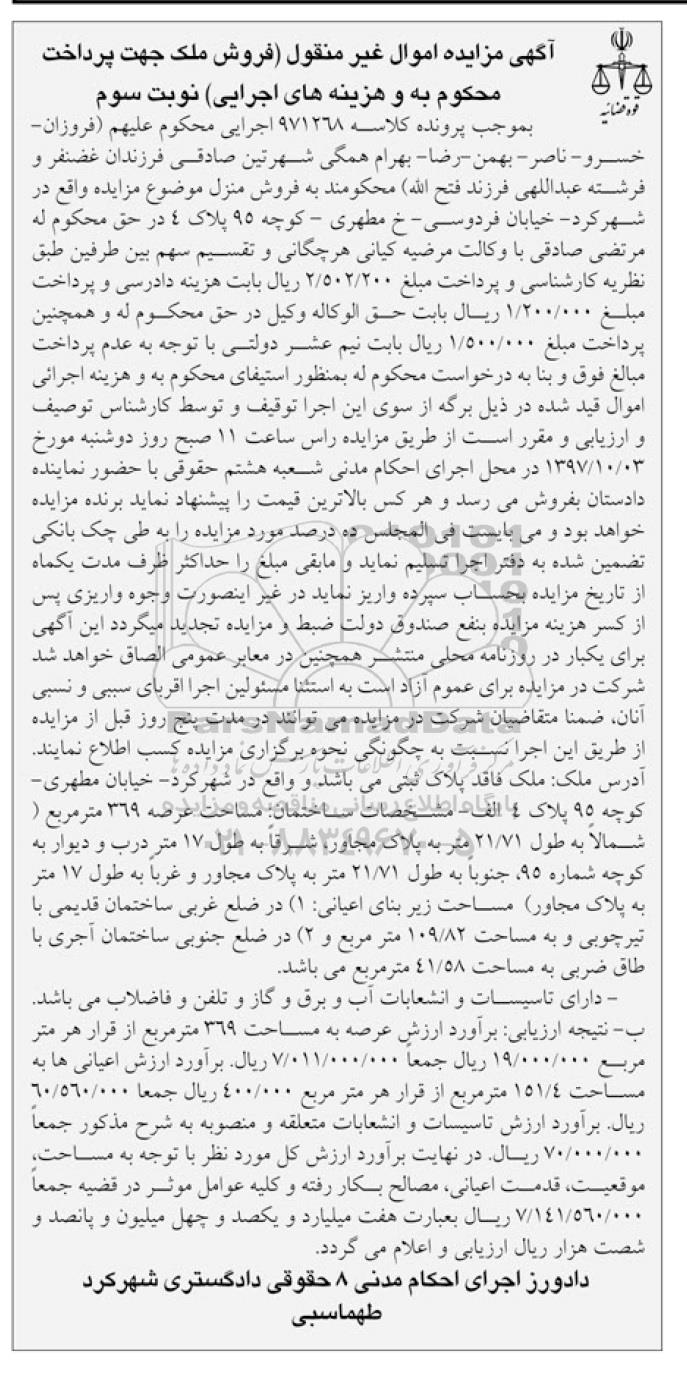 آگهی مزایده اموال غیر منقول (فروش ملک جهت پرداخت
محکوم به و هزینه های اجرایی) نوبت سوم
قوه قضائیه
بموجب پرونده کلاسه ۹۷۱۲۶۸ اجرایی محکوم علیهم (فروزان-
خسرو- ناصر- بهمن-رضا- بهرام همگی شهرتین صادقی فرزندان غضنفر و
فرشته عبداللهی فرزند فتح الله) محکومند به فروش منزل موضوع مزایده واقع در
شهرکرد- خیابان فردوسی- خ مطهری - کوچه ۹۵ پلاک ٤ در حق محکوم له
مرتضی صادقی با وکالت مرضیه کیانی هرچگانی و تقسیم سهم بین طرفین طبق
نظریه کارشناسی و پرداخت مبلغ ۲/۵۰۲/۲۰۰ ریال بابت هزینه دادرسی و پرداخت
مبلغ ۱/۲۰۰/۰۰۰ ریال بابت حق الوکاله وکیل در حق محکوم له و همچنین
پرداخت مبلغ ۱/۵۰۰/۰۰۰ ریال بابت نیم عشر دولتی با توجه به عدم پرداخت
مبالغ فوق و بنا به درخواست محکوم له بمنظور استیفای محکوم به و هزینه اجرائی
اموال قید شده در ذیل برگه از سوی این اجرا توقیف و توسط کارشناس توصیف
و ارزیابی و مقرر است از طریق مزایده راس ساعت ۱۱ صبح روز دوشنبه مورخ
۱۳۹۷/۱۰/۰۳ در محل اجرای احکام مدنی شعبه هشتم حقوقی با حضور نماینده
دادستان بفروش می رسد و هر کس بالاترین قیمت را پیشنهاد نماید برنده مزایده
خواهد بود و می بایست فی المجلس ده درصد مورد مزایده را به طی چک بانکی
تضمین شده به دفتر اجرا تسلیم نماید و مابقی مبلغ را حداکثر ظرف مدت یکماه
از تاریخ مزایده بحساب سپرده واریز نماید در غیر اینصورت وجوه واریزی پس
از کسر هزینه مزایده بنفع صندوق دولت ضبط و مزایده تجدید میگردد این آگهی
برای یکبار در روزنامه محلی منتشر همچنین در معابر عمومی الصاق خواهد شد
شرکت در مزایده برای عموم آزاد است به استثنا مسئولین اجرا اقربای سببی و نسبی
آنان، ضمنا متقاضیان شرکت در مزایده می توانند در مدت پنج روز قبل از مزایده
ParsNamadData
از طریق این اجرا نسبت به چگونگی نحوه برگزاری مزایده کسب اطلاع نمایند.
آدرس ملک: ملک فاقد پلاک ثبتی می باشد. و واقع در شهرکرد- خیابان مطهری-
کوچه ۹۵ پلاک ٤ الف- مشخصات ساختمان: مساحت عرصه ۳٦۹ مترمربع (
پایگاه اطلاع رسانی مناقصه و مزایده
شمالاً به طول ۲۱/۷۱ متر به پلاک مجاور، شرقاً به طول ۱۷ متر درب و دیوار به
۰۲۱-۸۸۳۴۹۶۷۰-۵
کوچه شماره ۹۵، جنوباً به طول ۲۱/۷۱ متر به پلاک مجاور و غرباً به طول ۱۷ متر
به پلاک مجاور) مساحت زیر بنای اعیانی: ۱) در ضلع غربی ساختمان قدیمی با
تیرچوبی و به مساحت ۱۰۹/۸۲ متر مربع و ۲) در ضلع جنوبی ساختمان آجری با
طاق ضربی به مساحت ٤۱/۵۸ مترمربع می باشد.
- دارای تاسیسات و انشعابات آب و برق و گاز و تلفن و فاضلاب می باشد.
ب- نتیجه ارزیابی: برآورد ارزش عرصه به مساحت ۳٦۹ مترمربع از قرار هر متر
مربع ۱۹/۰۰۰/۰۰۰ ریال جمعاً ۷/۰۱۱/۰۰۰/۰۰۰ ریال. برآورد ارزش اعیانی ها به
مساحت ۱۵۱/٤ مترمربع از قرار هر متر مربع ٤۰۰/۰۰۰ ریال جمعا ٦۰/۵٦۰/۰۰۰
ریال. برآورد ارزش تاسیسات و انشعابات متعلقه و منصوبه به شرح مذکور جمعاً
۷۰/۰۰۰/۰۰۰ ریال. در نهایت برآورد ارزش کل مورد نظر با توجه به مساحت،
موقعیت، قدمت اعیانی، مصالح بکار رفته و کلیه عوامل موثر در قضیه جمعاً
۷/۱٤۱/۵٦۰/۰۰۰ ریال بعبارت هفت میلیارد و یکصد و چهل میلیون و پانصد و
شصت هزار ریال ارزیابی و اعلام می گردد.
دادورز اجرای احکام مدنی ۸ حقوقی دادگستری شهرکرد
طهماسبی